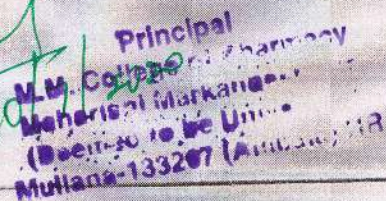 Principal
M.M. College of Pharmacy
Maharishi Markandeshwar
(Deemed to be Univ
Mullana-133207 (Ambala) HR